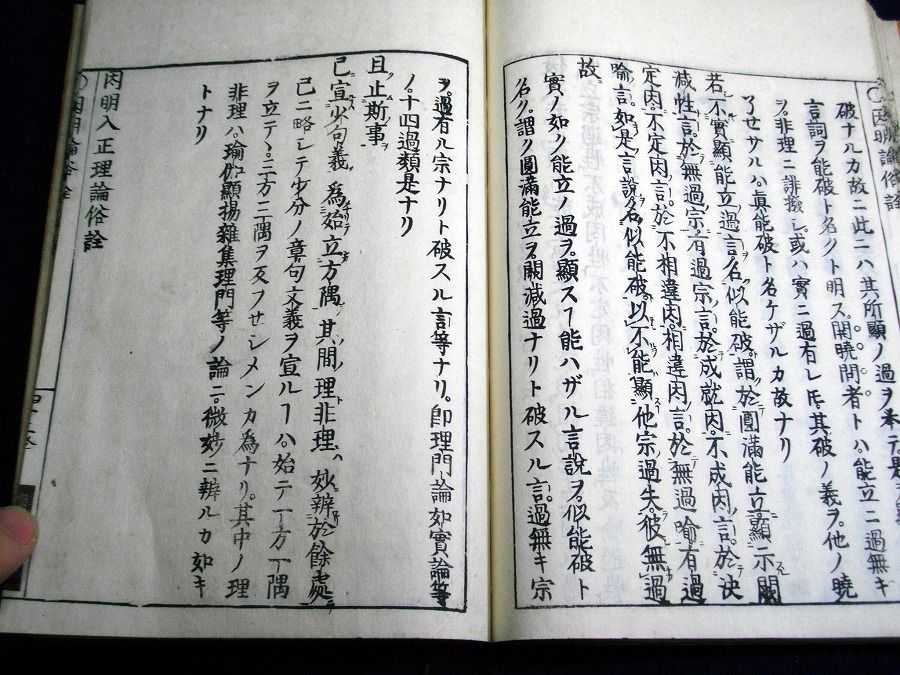 破ナルカ故ニ此ニハ其所顯ノ過ヲ
言詞ヲ能破ト名クト明ス。開曉問者トハ。能立ニ過無キ
ヲ。非理ニ誹撥シ或ハ實ニ過有レ𪜈。其破ノ義ヲ。他ノ曉
セサルハ。眞能破ト名ケザルカ故ナリ
若不實顯能立過言。名似能破。謂於圓滿能立。顯示闕
減性言。於無過宗。有過宗言。於成就因。不成因言。於決
定因。不定因言。於不相違因。相違因言。於無過喩。有過
喩言。如是言說名似能破。以不能顯他宗過失。彼無過
故
實ノ如ク能立ノ過ヲ。顯スヿ能ハザル言說ヲ。似能破ト
名ク。謂ク圓滿能立ヲ。闕減過ナリト破スル言。過無キ宗
ヲ。過有ル宗ナリト破スル言等ナリ。卽理門論如實論等
ノ。十四過類是ナリ
且止斯事
已宣少句義 爲始立方隅 其間理非理 妙辨於餘處
已ニ略シテ少分ノ章句文義ヲ宣ルヿハ。始テ一方一隅
ヲ立テヽ。三方三隅ヲ反フセシメンカ爲ナリ。其中ノ理
非理ハ。瑜伽顯揚雜集理門等ノ論ニ。微妙ニ辨ルカ如キ
トナリ
因明入正理論俗詮